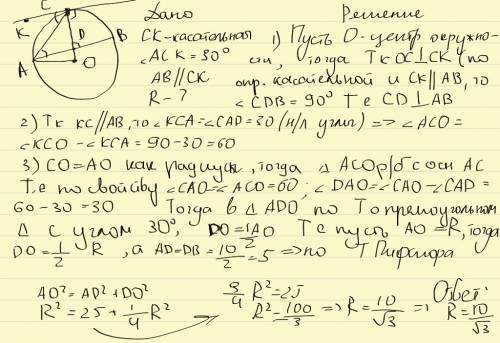 Дано Решение
C
K
B
D
A
O
CK-касательная
∠ACK=30°
AB∥CK
R-?
1) Пусть O-центр окружно-
сти, тогда Тк OC⊥CK (по
опр. касательной и CK∥AB, то
∠CDB=90° Те CD⊥AB
2) Тк KC∥AB, то ∠KCA=∠CAD=30 (н/л углы) => ∠ACO=
∠KCO-∠KCA=90-30=60
3) CO=AO как радиусы, тогда ΔACO р/б с осн AC
Т.е по свойву ∠CAO=∠ACO=60; ∠DAO=∠CAO-∠CAD=
60-30=30 Тогда в ΔADO, по Т о прямоугольном
Δ с углом 30°, DO=1/2AO Те пусть AO=R, тогда
DO=1/2 R, а AD=DB=10/2=5 => по Т Пифагора
AO²=AD²+DO²
R²=25+1/4R²
3/4R²=25
R²=100/3 => R=10/√3 =>
Ответ:
R=10/√3